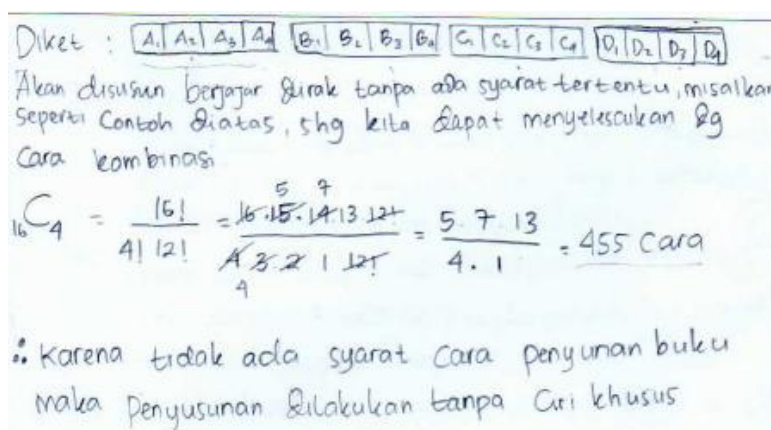 Diket : A₁ A₂ A₃ A₄ B₁ B₂ B₃ B₄ C₁ C₂ C₃ C₄ D₁ D₂ D₃ D₄
Akan disusun berjajar dirak tanpa ada syarat tertentu, misalkan
seperti contoh diatas, shg kita dapat menyelesaikan dg
cara kombinasi
₁₆C₄ = 16! / 4! 12! = 16.15.14 13 12! / 4 3 2 1 12! = 5. 7. 13 / 4. 1 = 455 cara
∴ Karena tidak ada syarat cara penyunan buku
maka penyusunan dilakukan tanpa ciri khusus